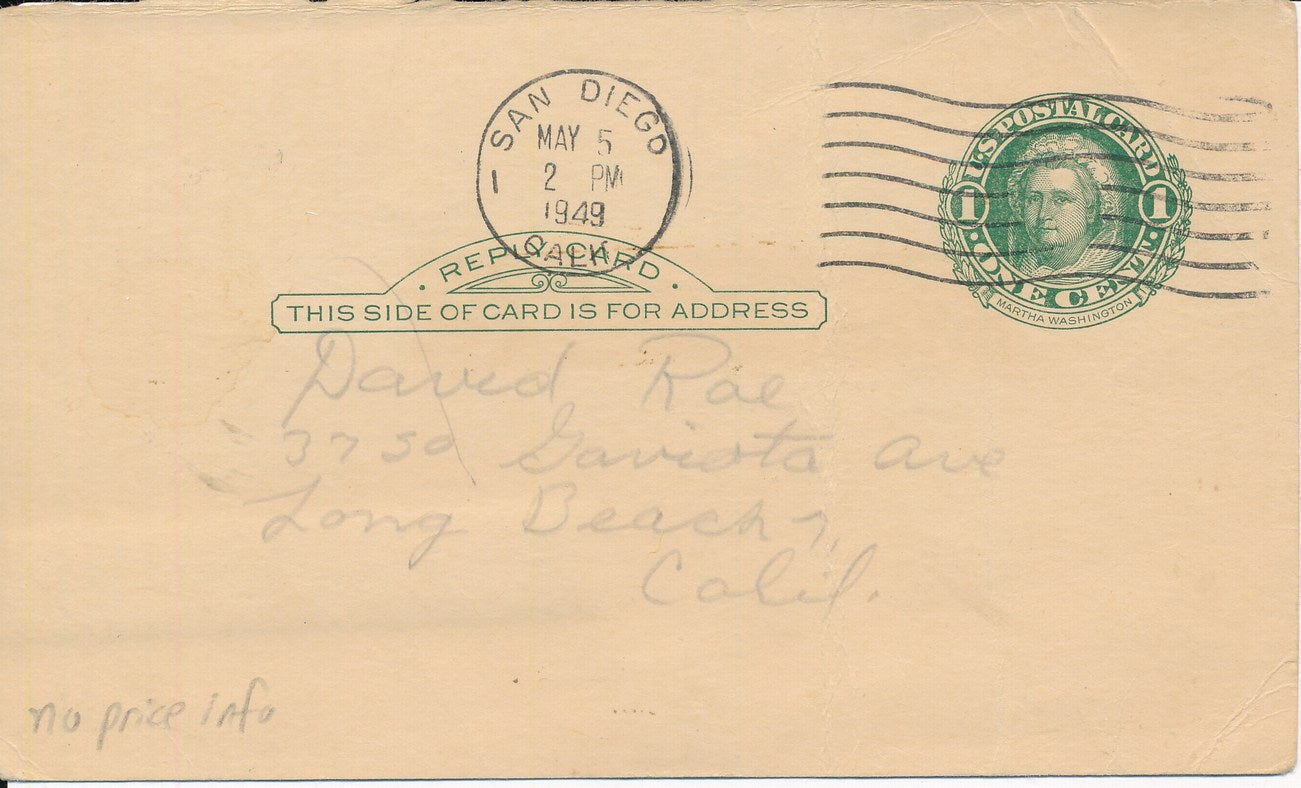 SAN DIEGO
MAY 5
2 PM
1949
CALIF.
U.S. POSTAL CARD
1 1
ONE CENT.
MARTHA WASHINGTON
REPLY CARD
THIS SIDE OF CARD IS FOR ADDRESS
David Rae
3750 Gaviota Ave
Long Beach 7,
Calif.
no price info